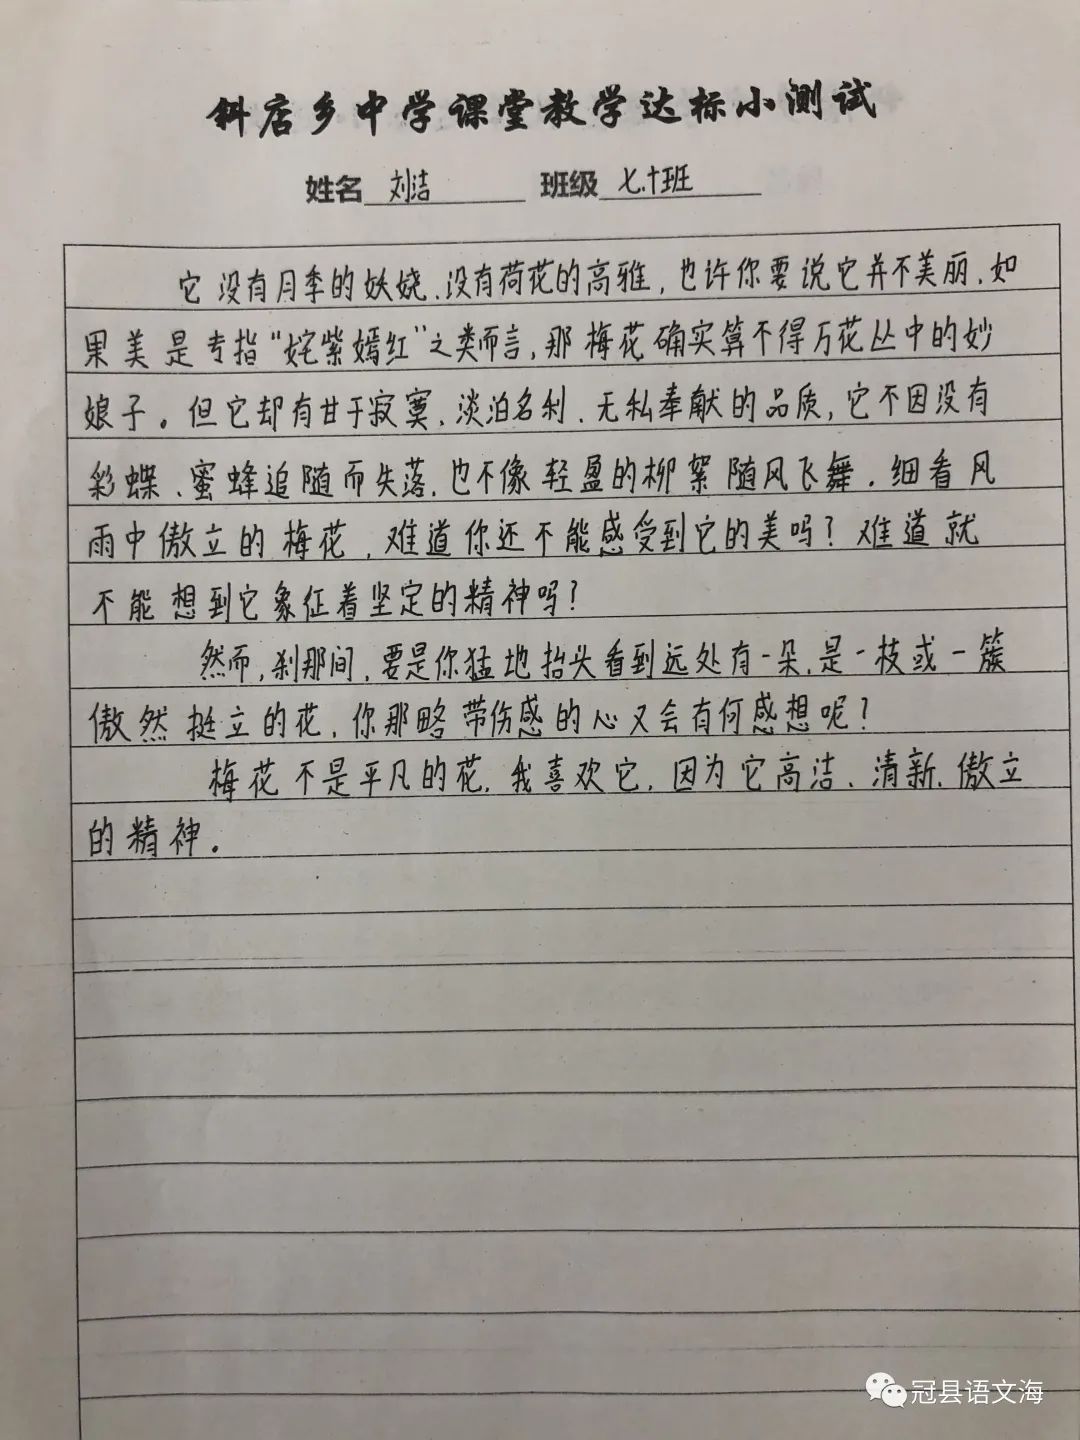 斜店乡中学课堂教学达标小测试
姓名 刘洁 班级 七.十班
它没有月季的妖娆、没有荷花的高雅，也许你要说它并不美丽，如
果美是专指“姹紫嫣红”之类而言，那梅花确实算不得万花丛中的妙
娘子。但它却有甘于寂寞、淡泊名利、无私奉献的品质，它不因没有
彩蝶、蜜蜂追随而失落，也不像轻盈的柳絮随风飞舞．细看风
雨中傲立的梅花，难道你还不能感受到它的美吗？难道就
不能想到它象征着坚定的精神吗？
然而，刹那间，要是你猛地抬头看到远处有一朵，是一枝或一簇
傲然挺立的花，你那略带伤感的心又会有何感想呢？
梅花不是平凡的花，我喜欢它，因为它高洁、清新、傲立
的精神．
冠县语文海